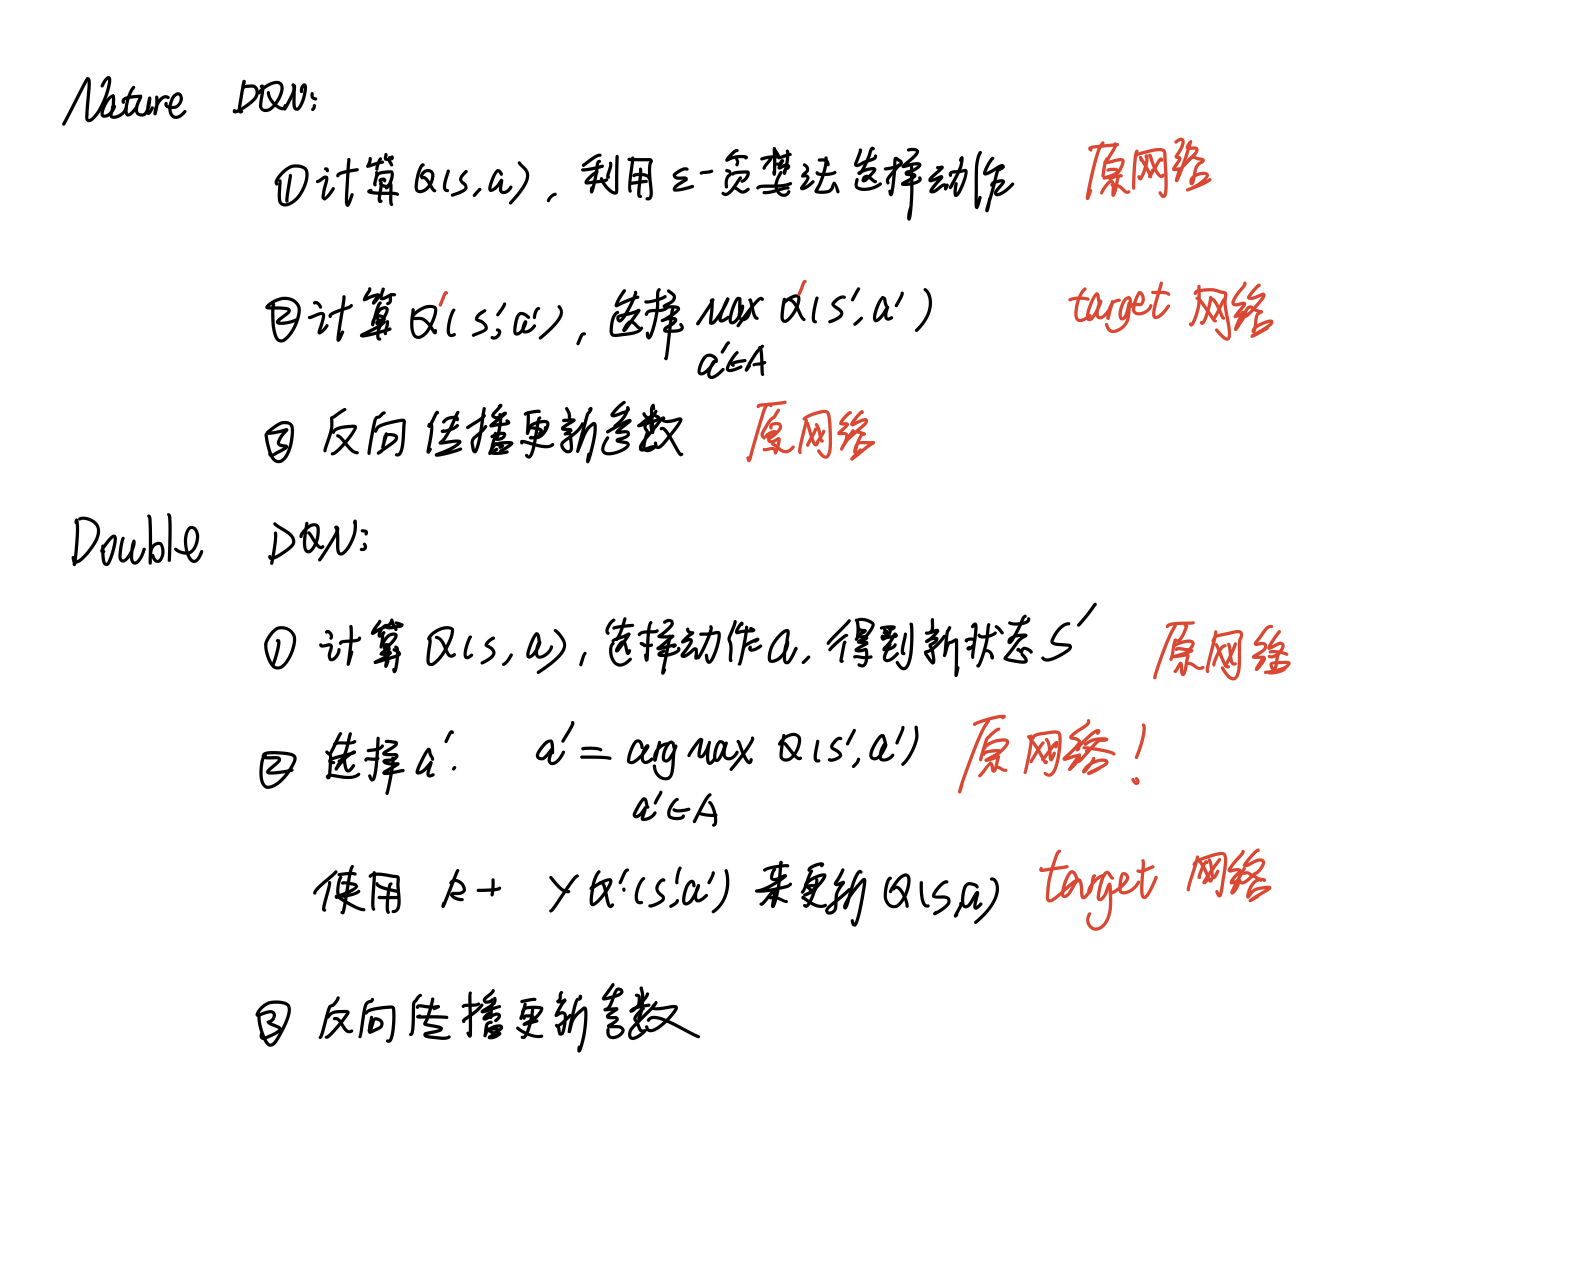 Nature DQN:
①计算Q(s,a), 利用ε-贪婪法选择动作 原网络
②计算Q'(s',a'), 选择 max Q'(s',a') target 网络
a'∈A
③ 反向传播更新参数 原网络
Double DQN:
① 计算Q(s,a), 选择动作a, 得到新状态S' 原网络
② 选择a'. a' = argmax Q(s',a') 原网络!
a'∈A
使用 R+ γQ'(s',a') 来更新Q(s,a) target 网络
③ 反向传播更新参数